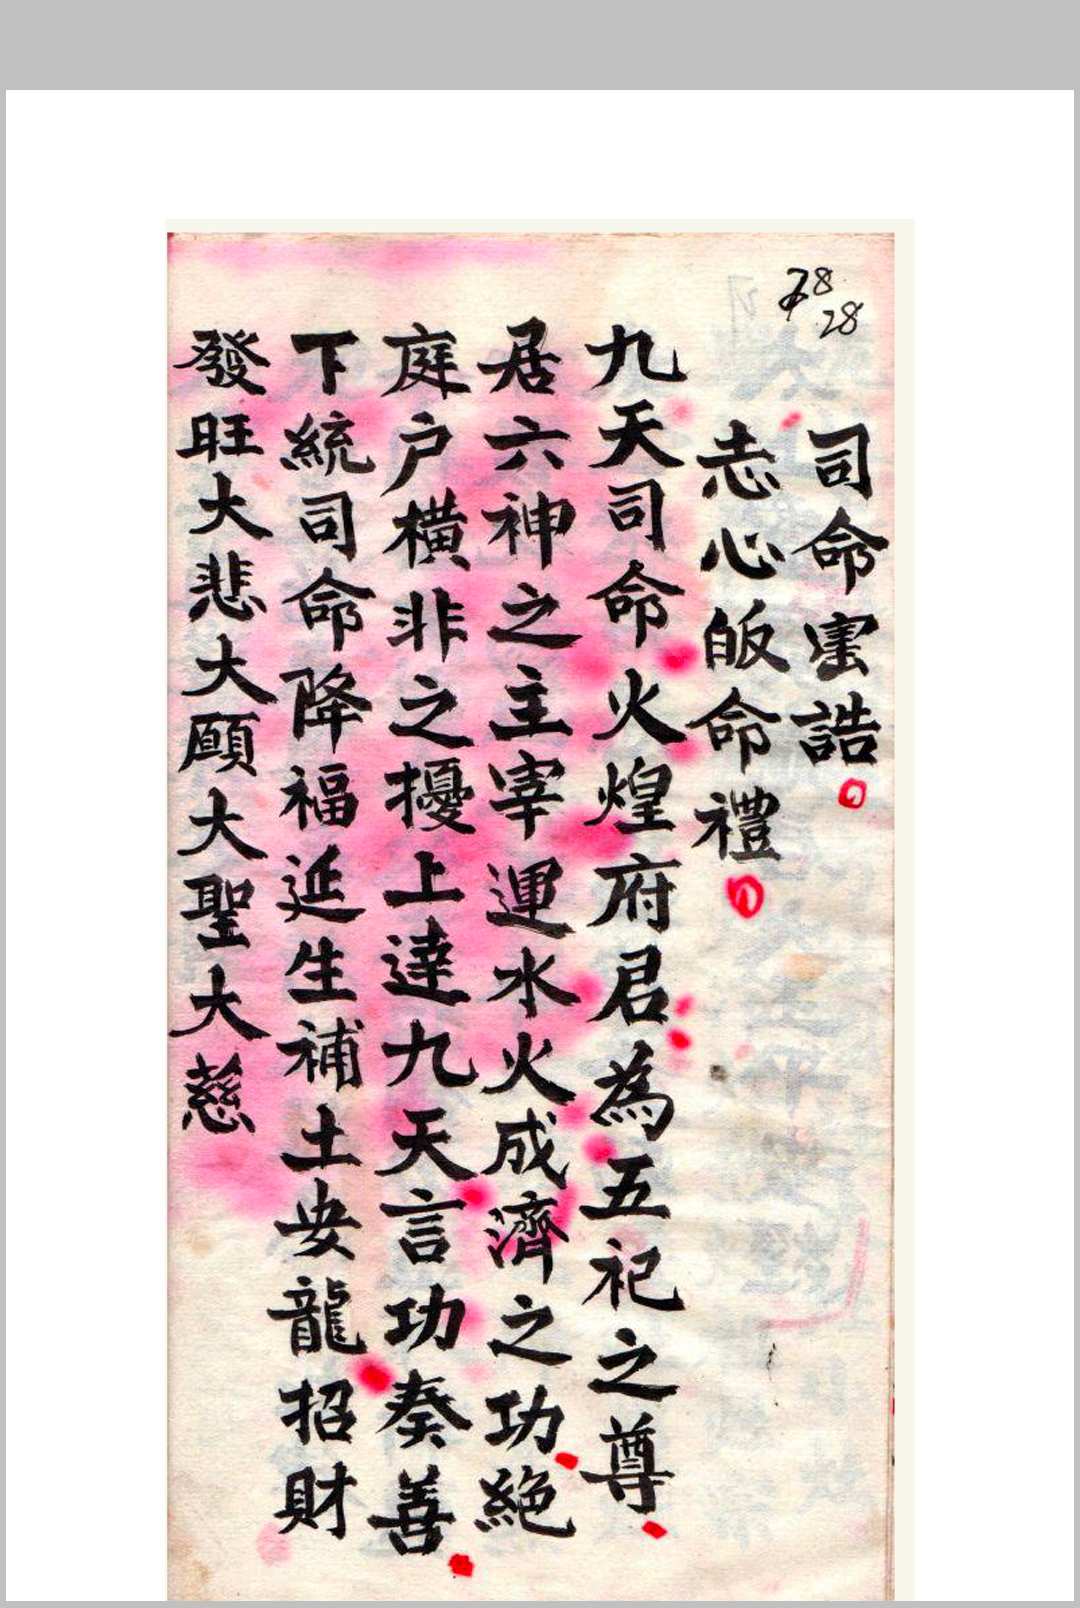 司命寚誥
志心皈命禮
九天司命火煌府君為五祀之尊
居六神之主宰運水火成濟之功絶
庭户横非之擾上達九天言功奏善
下統司命降福延生補土安龍招財
發旺大悲大願大聖大慈
28